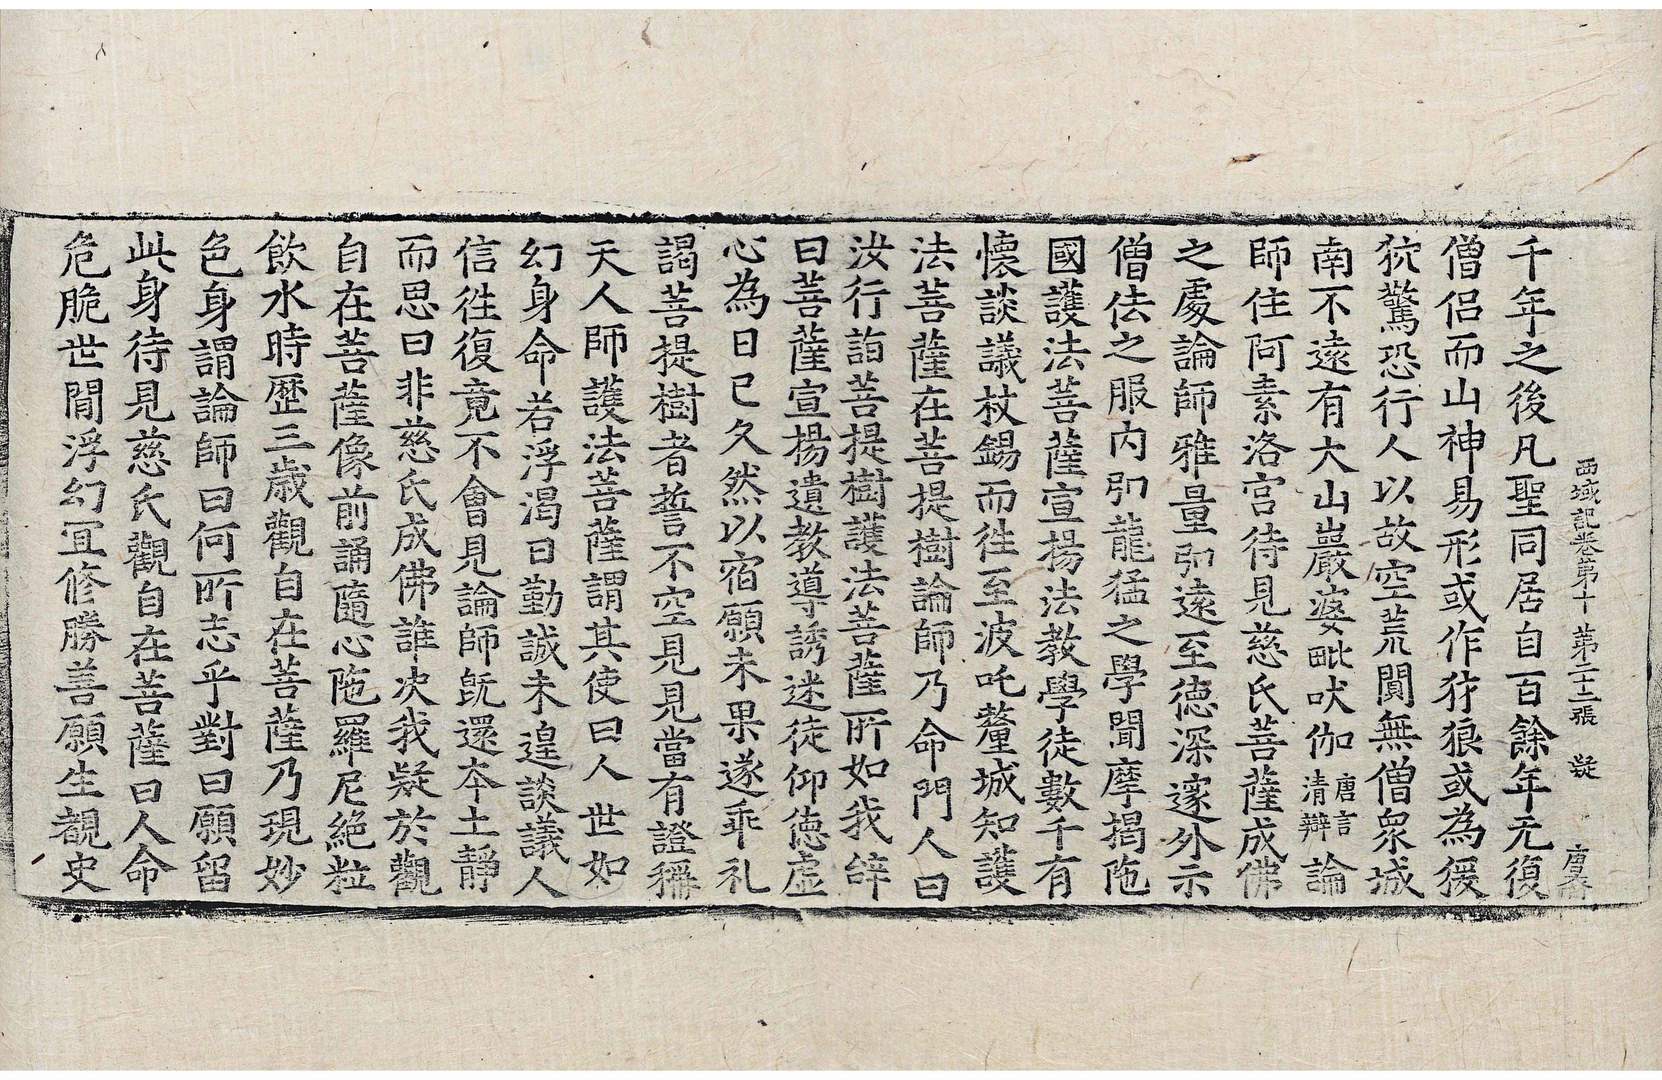 西域記卷第十 第二十二張 疑
千年之後凡聖同居自百餘年无復
僧侶而山神易形或作犲狼或為猨
狖驚恐行人以故空荒闃無僧衆城
南不遠有大山巖婆毗吠伽唐言清辯論
師住阿素洛宮待見慈氏菩薩成佛
之處論師雅量弘遠至德深邃外示
僧佉之服內弘龍猛之學聞摩揭陁
國護法菩薩宣揚法教學徒數千有
懷談議杖錫而往至波吒釐城知護
法菩薩在菩提樹論師乃命門人曰
汝行詣菩提樹護法菩薩所如我辝
曰菩薩宣揚遺教導誘迷徒仰德虛
心為日已久然以宿願未果遂乖礼
謁菩提樹者誓不空見見當有證稱
天人師護法菩薩謂其使曰人世如
幻身命若浮渴日勤誠未遑談議人
信往復竟不會見論師旣還夲土靜
而思曰非慈氏成佛誰決我疑於觀
自在菩薩像前誦隨心陁羅尼絕粒
飲水時歷三歲觀自在菩薩乃現妙
色身謂論師曰何所志乎對曰願留
此身待見慈氏觀自在菩薩曰人命
危脆世閒浮幻冝修勝善願生覩史